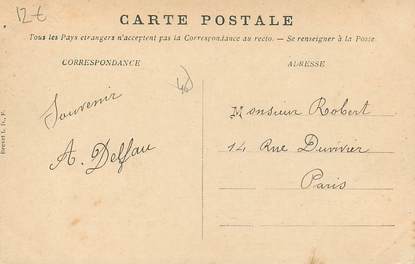 12€
CARTE POSTALE
Tous les Pays étrangers n'acceptent pas la Correspondance au recto. — Se renseigner à la Poste.
CORRESPONDANCE
ADRESSE
Souvenir
A. Delfau
Monsieur Robert
14 Rue Duvivier
Paris